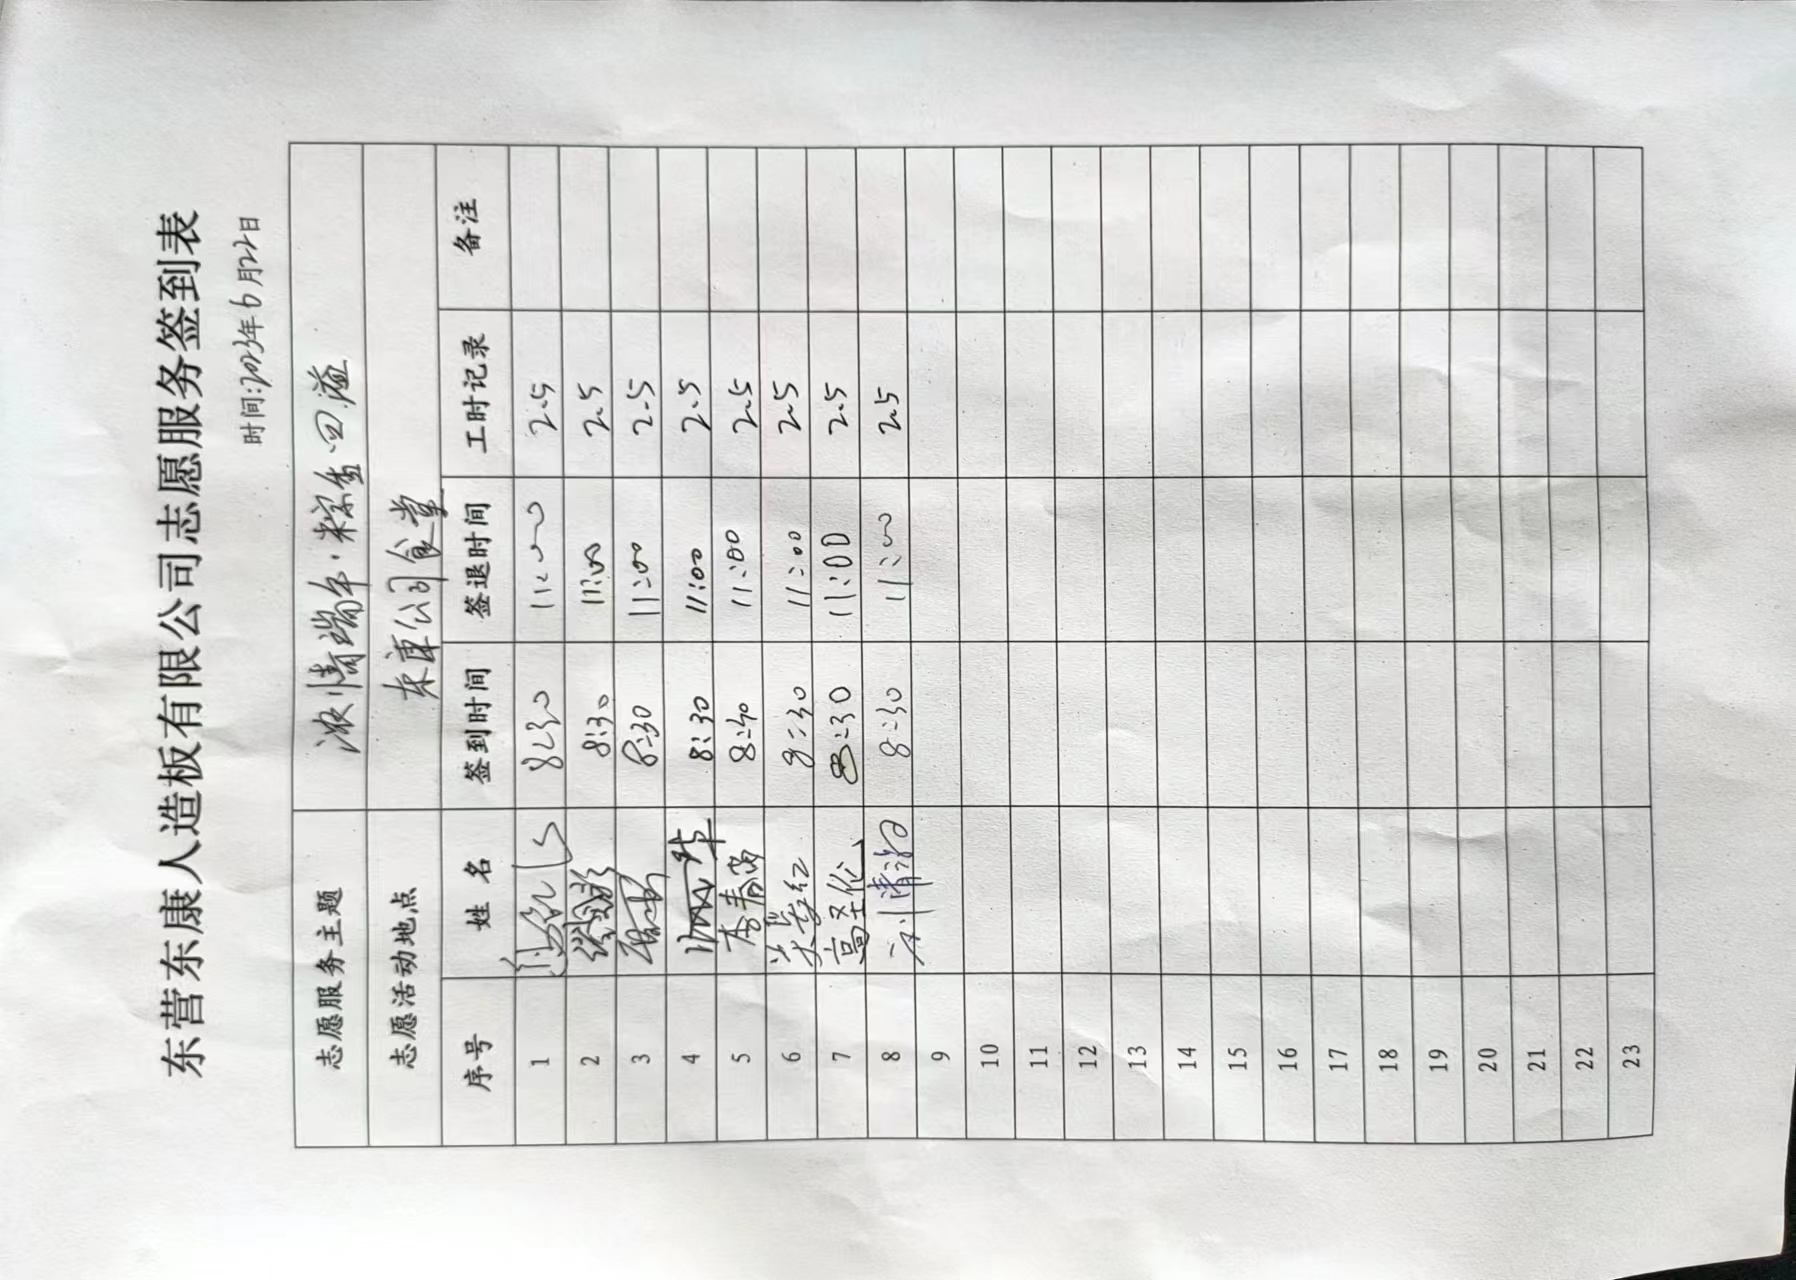 东营东康人造板有限公司志愿服务签到表
时间:2023年6月22日
志愿服务主题 浓情端午·粽香四溢
志愿活动地点 东康公司食堂
序号 姓名 签到时间 签退时间 工时记录 备注
1 8:30 11:00 2.5
2 8:30 11:00 2.5
3 8:30 11:00 2.5
4 8:30 11:00 2.5
5 李春窝 8:30 11:00 2.5
6 8:30 11:00 2.5
7 高圣伦 8:30 11:00 2.5
8 8:30 11:00 2.5
9
10
11
12
13
14
15
16
17
18
19
20
21
22
23